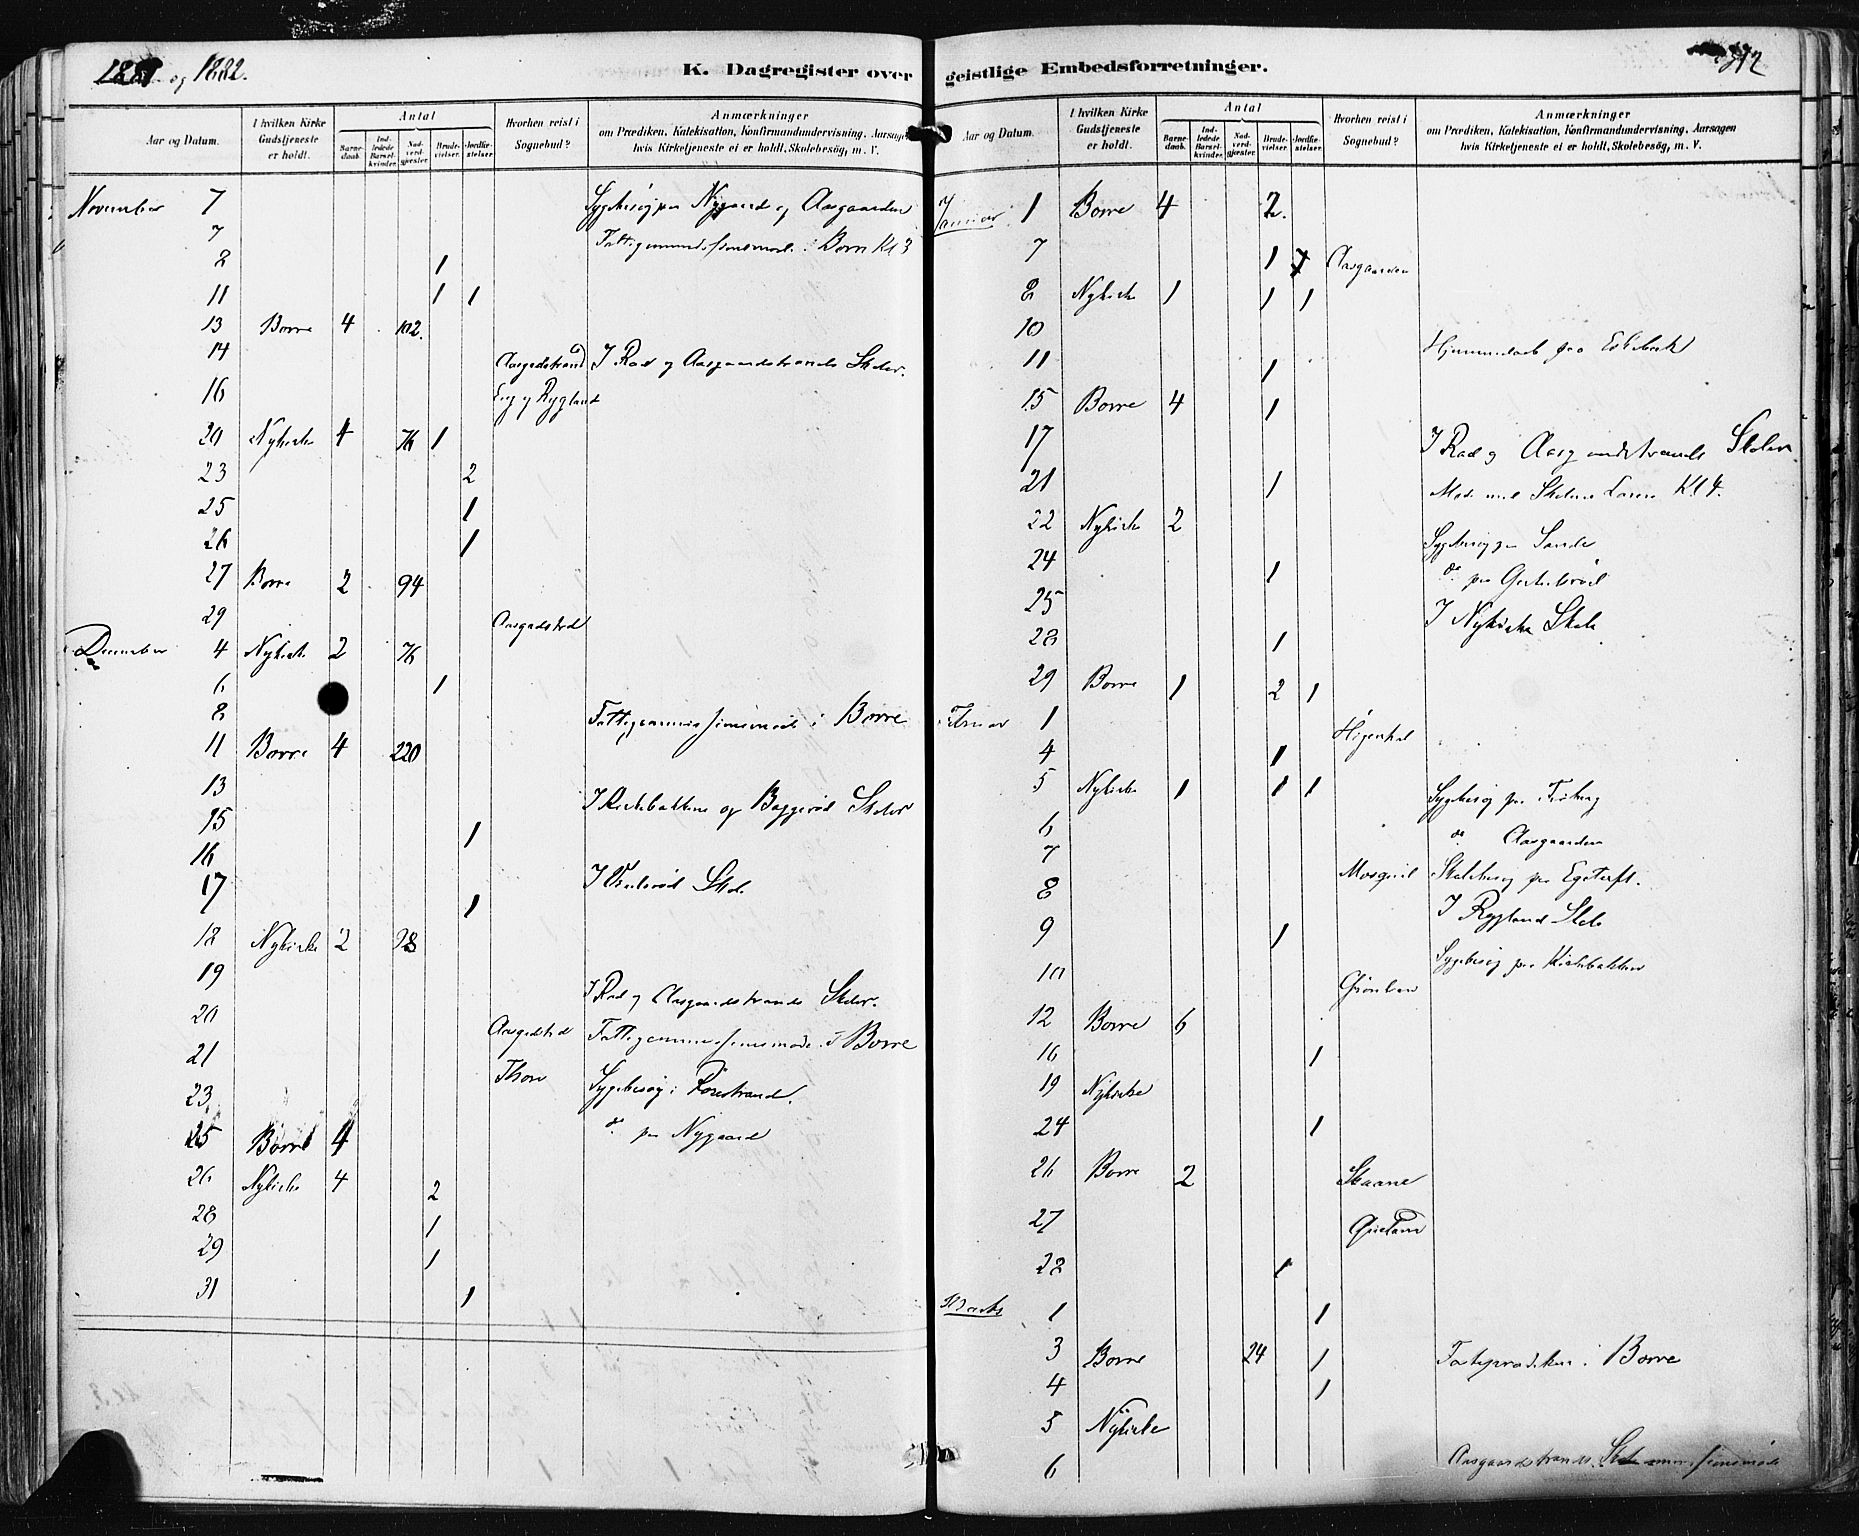 1881 og 1882.
K. Dagregister over geistlige Embedsforretninger.
312
Aar og Datum.
I hvilken Kirke Gudstjeneste er holdt.
Antal
Barnedaab.
Indledede Barselkvinder.
Nadvergjæster.
Brudevielser.
Jordfæstelser.
Hvorhen reist i Sognebud?
Anmærkninger
om Prædiken, Katekisation, Konfirmandundervisning, Aarsagen
hvis Kirketjeneste ei er holdt, Skolebesög, m. V.
November 7 Sygebesög paa Nygaard og Aasgaarden
7 Fattigcommissionsmøde i Borre Kl 3
8 1
11 1 1
13 Borre 4 102.
14 Aasgadstrand I Rad og Aasgaardstrands Skoler.
16 og Rygland
20 Nykirke 4 76 1
23 2
25 1
26 1
27 Borre 2 94
29 Aasgadstrd
December 4 Nykirke 2 76
6 1
8 Fattigcommissionsmöde i Borre
11 Borre 4 220
13 I Kirkebakkene og Baggerød Skoler
15 1
16
17 1 I Skole
18 Nykirke 2 98
19 I Rad og Aasgaardstrands Skoler.
20 Aasgadstrd Fattigcommissionsmøde i Borre
21 Thon Sygebesög i
23 do paa Nygaard
25 Borre 4
26 Nykirke 4 2
28 1
29 1
31 1
Aar og Datum.
I hvilken Kirke Gudstjeneste er holdt.
Antal
Barnedaab.
Indledede Barselkvinder.
Nadvergjæster.
Brudevielser.
Jordfæstelser.
Hvorhen reist i Sognebud?
Anmærkninger
om Prædiken, Katekisation, Konfirmandundervisning, Aarsagen
hvis Kirketjeneste ei er holdt, Skolebesög, m. V.
Januar 1 Borre 4 2.
7 1 Aasgaarden
8 Nykirke 1 1 1
10 Hjemmedaab paa
11 1
15 Borre 4 1
17 I Rad og Aasgaardstrands Skoler
21 1 Møde med Skolens Lærere Kl 4.
22 Nykirke 2
24 1 Sygebesög paa Sande
25 do paa
28 1 I Nykirke Skole
29 Borre 1 2 1
Februar 1
4 1
5 Nykirke 1 1 1 Sygebesög paa
6 do Aasgaarden
7
8 Skolebesög paa
9 1 I Rygland Skole
10 Sygebesög paa Kirkebakken
12 Borre 6
16 1
19 Nykirke
24 1
26 Borre 2 Skaane
27
28 1
Marts 1 1
3 Borre 24 1 Fasteprædiken i Borre
4 1
5 Nykirke
6 Aasgaardstrands Skolecommissionsmøde